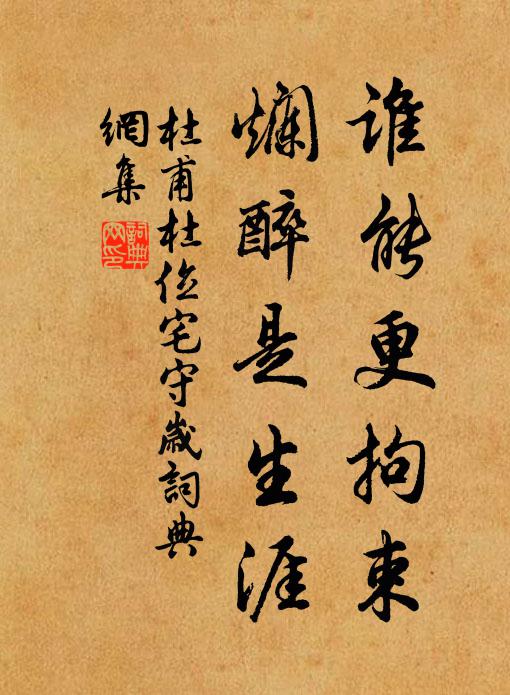 谁能更拘束
爛醉是生涯
杜甫杜位宅守歲詞典
網集
詞典
网印